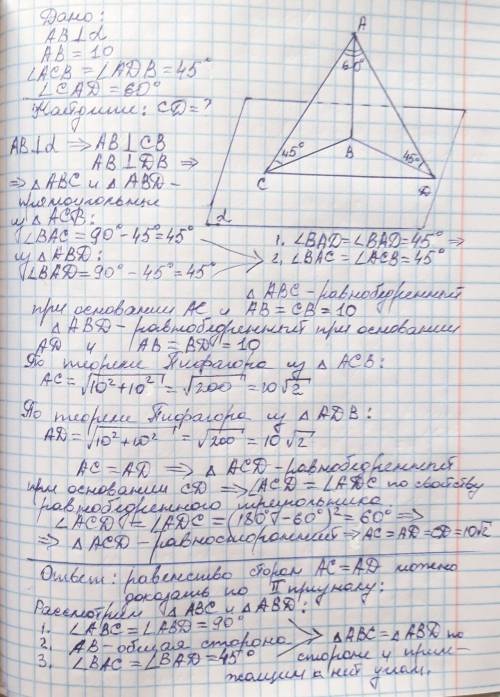 Дано:
AB⊥α
AB = 10
∠ACB = ∠ADB = 45°
∠CAD = 60°
Найдите: CD = ?
A
60°
B
45°
45°
C
D
α
AB⊥α ⟹ AB⊥CB
AB⊥DB ⟹
⟹ △ABC и △ABD -
прямоугольные
из △ACB:
∠BAC = 90° - 45° = 45°
из △ABD:
∠BAD = 90° - 45° = 45°
1. ∠BAD = ∠BAD = 45° ⟹
2. ∠BAC = ∠ACB = 45°
△ABC - равнобедренный
при основании AC и AB = CB = 10
△ABD - равнобедренный при основании
AD и AB = BD = 10
По теореме Пифагора из △ACB:
AC = √10² + 10² = √200 = 10√2
По теореме Пифагора из △ADB:
AD = √10² + 10² = √200 = 10√2
AC = AD ⟹ △ACD - равнобедренный
при основании CD ⟹ ∠ACD = ∠ADC по свойству
равнобедренного треугольника
∠ACD = ∠ADC = (180° - 60°) : 2 = 60° ⟹
⟹ △ACD - равносторонний ⟹ AC = AD = CD = 10√2
Ответ: равенство сторон AC = AD можно
доказать по II признаку:
Рассмотрим △ABC и △ABD:
1. ∠ABC = ∠ABD = 90°
2. AB - общая сторона
3. ∠BAC = ∠BAD = 45°
△ABC = △ABD по
стороне и приле-
жащим к ней углам.